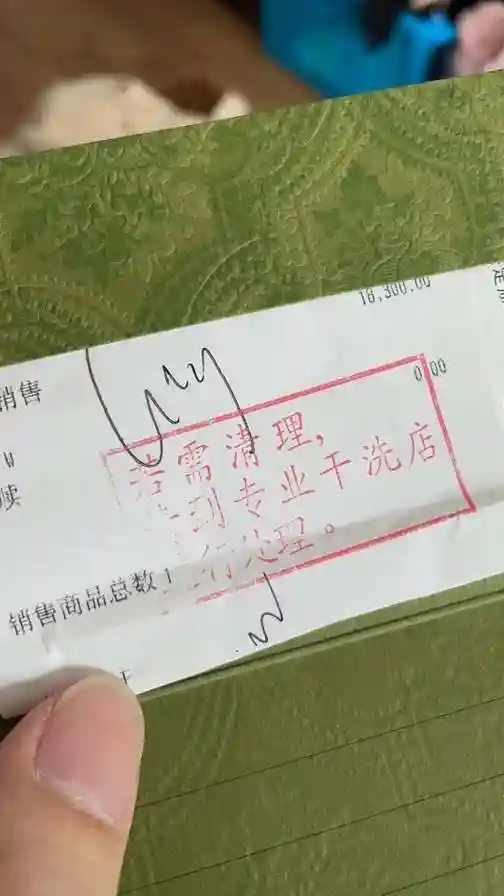 18,300.00
销售
0.00
W
若需清理，
到专业干洗店
行处理。
销售商品总数 1